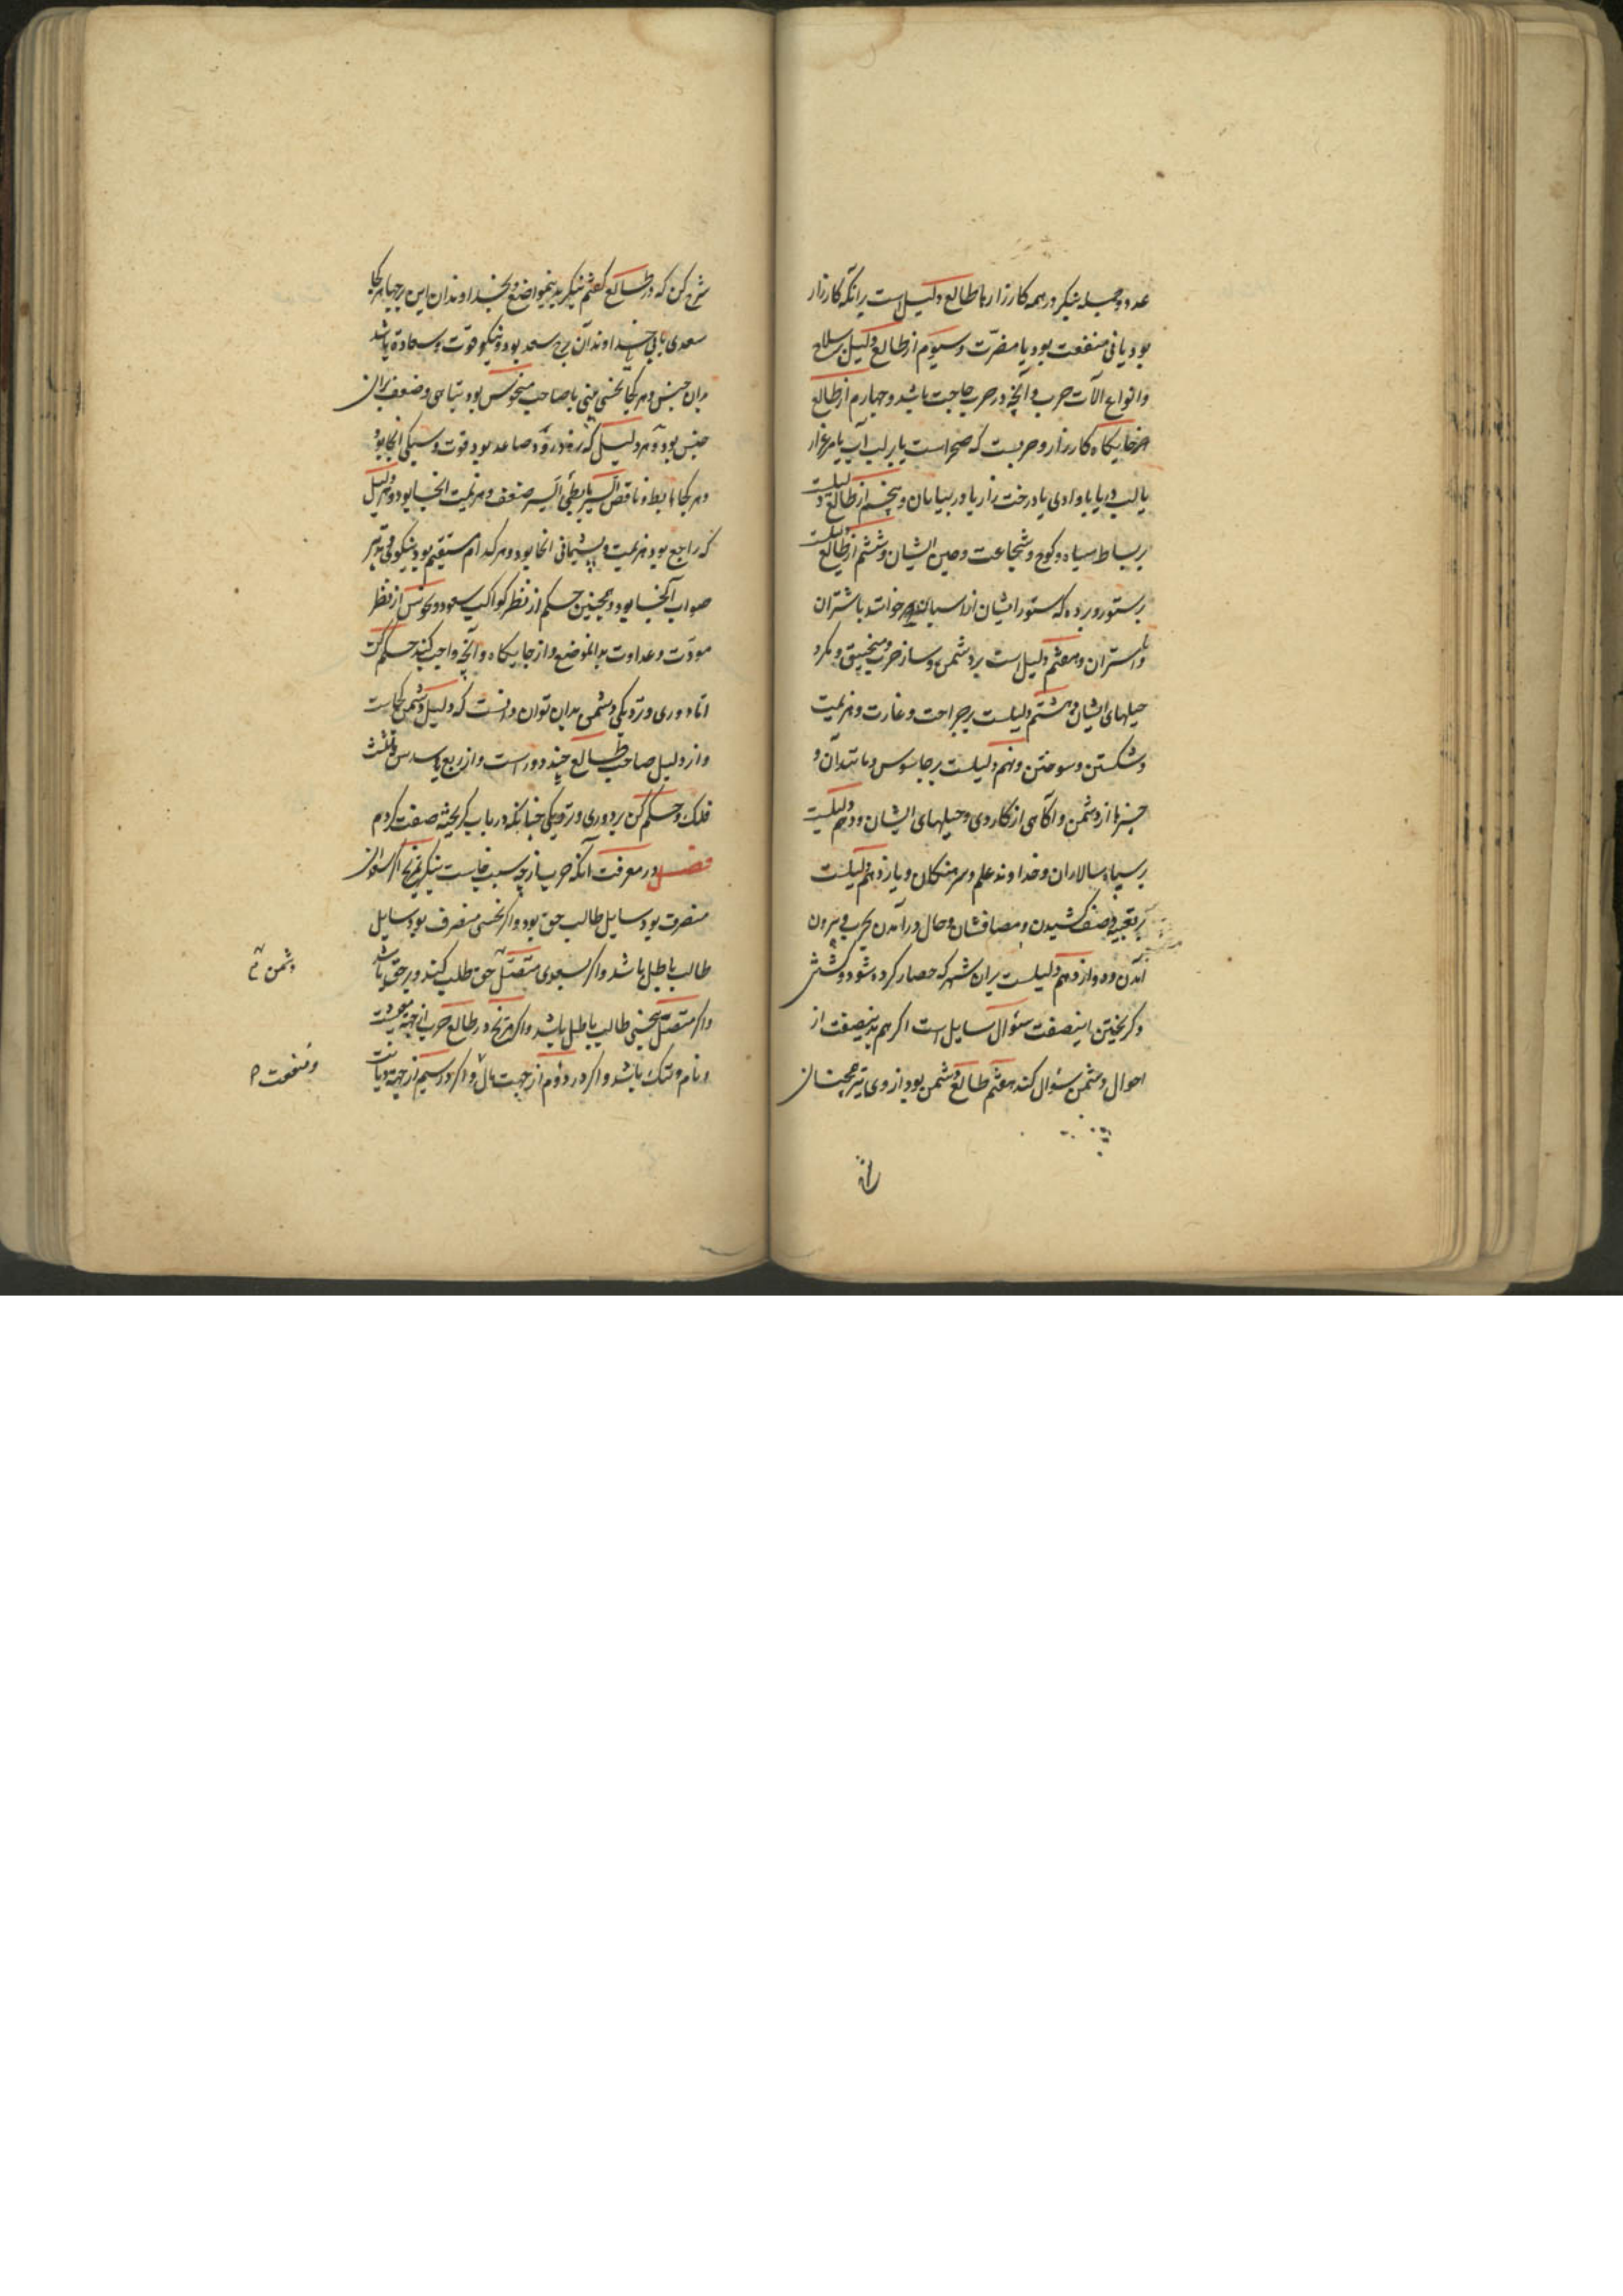 عدو و حیله بنگر در همه کارزارها طالع دلیل است برانکه کارزار
بود یا نی منفعت بود یا مضرّت و سیوم از طالع دلیل بر سلاح
و انواع آلات حرب و آنچه در حرب حاجت باشد و چهارم از طالع
جایکاه کارزار و حربست که صحراست یا بر لب آب یا مرغزار
یا لب دریا یا وادی یا درخت زار یا در بیابان و پنجم از طالع دلیلست
بر بساط سپاه و کوچ و شجاعت و حین ایشان و ششم از طالع دلیلست
بر ستور و برده که ستور ایشان خواهند یا شتران
و استران و هفتم دلیل است بر دشمن و ساز حرب و منجنیق و مکر و
حیلهای ایشان و هشتم دلیلست بر جراحت و غارت و هزیمت
و شکستن و سوختن و نهم دلیلست بر جاسوس و مانند آن و
خبرها از دشمن و آکاهی از کار وی و حیلهای ایشان و دهم دلیلست
بر سپاه سالاران و خداوند علم و سرهنکان و یازدهم دلیلست
بر تعبیه و صف کشیدن و مصافشان و حال در آمدن بحرب و بیرون
آمدن و دوازدهم دلیلست بران شهر که حصار کرده شود و کشتن
و کریختن اینصفت سؤال سایل است اکر هم بدینصفت از
احوال دشمن سؤال کند هفتم طالع دشمن بود از وی نیز همچنان
شرح کن که در طالع کفتم بنکر بدینمواضع و بخداوندان این برجها هر کجا
سعدی یابی خداوند آن برج سعد بود و نیکو قوّت و سعادة باشد
بدان جنس و هر کجا نحسی بینی یا صاحب منحوس بود تباهی و ضعف بران
جنس بود و هر دلیل که در ذروه صاعد بود قوت و سبکی انجا بود
و هر کجا هابط و ناقص السیر یا بطئی السیر ضعف و هزیمت انجا بود و هر دلیل
که راجع بود هزیمت و پشیمانی انجا بود و هر کدام مستقیم بود نیکوئی و تدبیر
صواب آنجا بود و همچنین حکم از نظر کواکب سعود و نحوس از نظر
مودّت و عداوت بدانموضع و از جایکاه و آنچه واجب کند حکم کن
امّا دوری و نزدیکی دشمن بدان توان دانست که دلیل دشمن کجاست
و از دلیل صاحب طالع چند دور است و از ربع یا سدس یا ثلث
فلک و حکم کن بر دوری و نزدیکی چنانکه در باب کریخته صفت کردم
فصل در معرفت آنکه حرب از چه سبب خاست بنکر بمریخ اکر از سعدان
منصرف بود سایل طالب حق بود و اکر از نحسی منصرف بود سایل
طالب باطل باشد و اکر بسعدی متصل حق طلب کند و بر حق باشد
و اکر متصل بنحسی طالب باطل باشد و اکر مریخ در طالع حرب از جهة معیشت
و نام و ننک باشد و اکر در دوم از جهت مال و اکر در سیم از جهة دیانت
دشمن
و منفعت